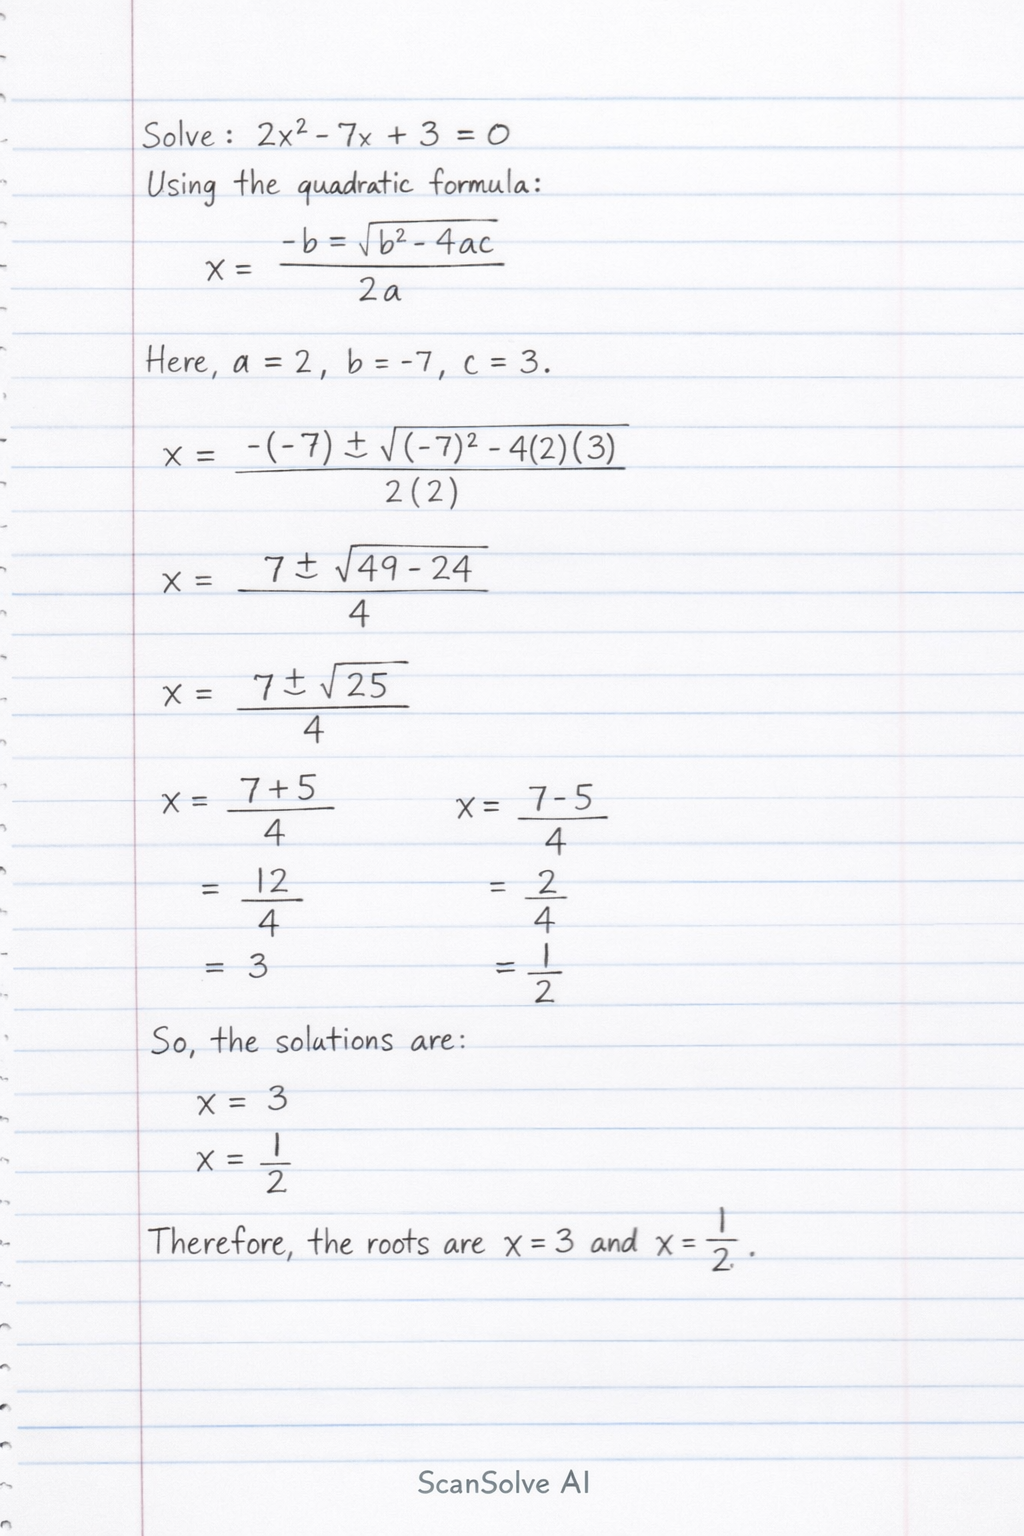 Solve: 2x² - 7x + 3 = 0
Using the quadratic formula:
x = (-b = √(b² - 4ac)) / (2a)
Here, a = 2, b = -7, c = 3.
x = (-(-7) ± √((-7)² - 4(2)(3))) / (2(2))
x = (7 ± √(49 - 24)) / 4
x = (7 ± √25) / 4
x = (7 + 5) / 4    x = (7 - 5) / 4
= 12/4    = 2/4
= 3    = 1/2
So, the solutions are:
x = 3
x = 1/2
Therefore, the roots are x = 3 and x = 1/2.
ScanSolve AI